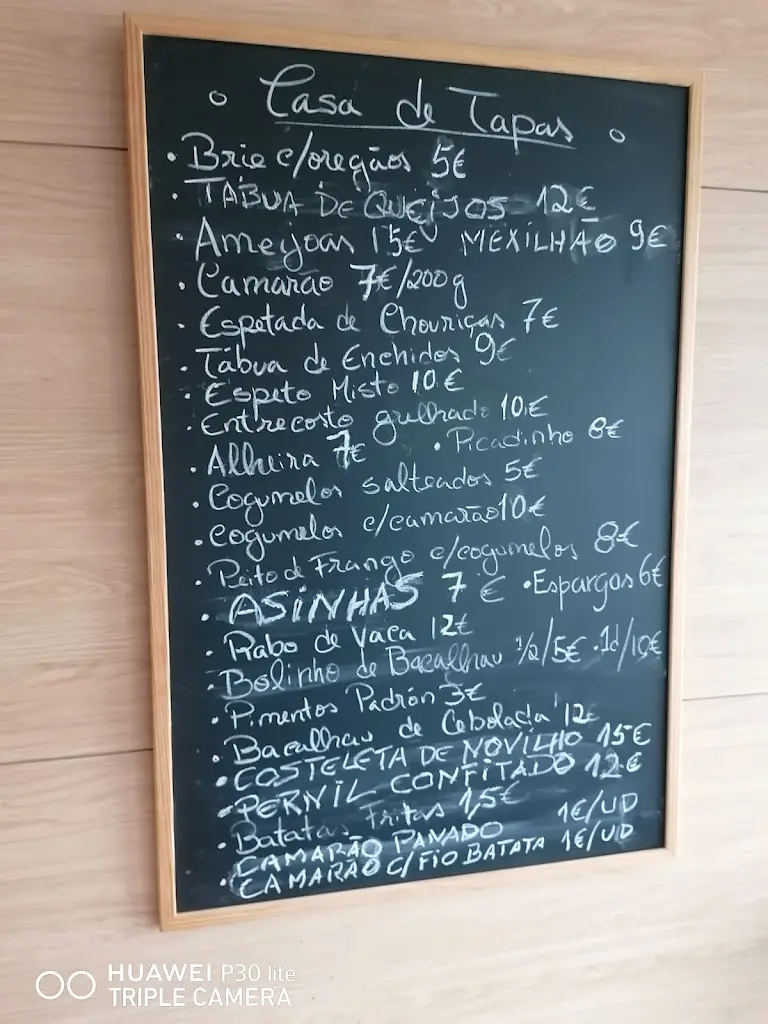 Casa de Tapas
• Brie c/oregãos 5€
• TÁBUA DE QUEIJOS 12€
• Ameijoas 15€ MEXILHÃO 9€
• Camarão 7€/200g
• Espetada de Chouriças 7€
• Tábua de Enchidos 9€
• Espeto Misto 10€
• Entrecosto grelhado 10€
• Alheira 7€ • Picadinho 8€
• Cogumelos salteados 5€
• Cogumelos c/camarão 10€
• Peito d Frango c/cogumelos 8€
• ASINHAS 7€ • Espargos 6€
• Rabo de Vaca 12€
• Bolinho de Bacalhau 1/2/5€ • 1d/10€
• Pimentos Padrón 3€
• Bacalhau de Cebolada 12€
• COSTELETA DE NOVILHO 15€
• PERNIL CONFITADO 12€
• Batatas Fritas 1,5€
CAMARÃO PANADO 1€/UD
• CAMARÃO C/FIO BATATA 1€/UD
HUAWEI P30 lite
TRIPLE CAMERA